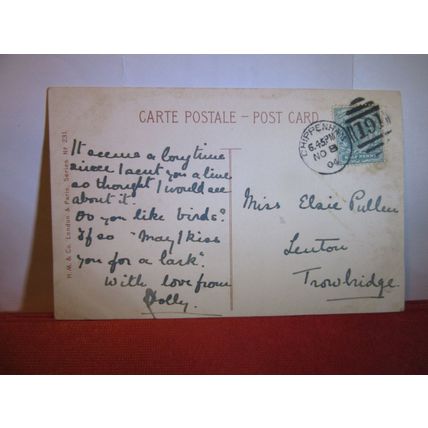 CARTE POSTALE – POST CARD
CHIPPENHAM
6.45PM
NO 8
04
191
It seems a long time
since I sent you a line
so thought I would see
about it.
Do you like birds?
If so "May I kiss
you for a lark".
With love from
Dolly.
Miss Elsie Pullen
Lenton
Trowbridge.
H.M. & Co. London & Paris, Series Nr 231.